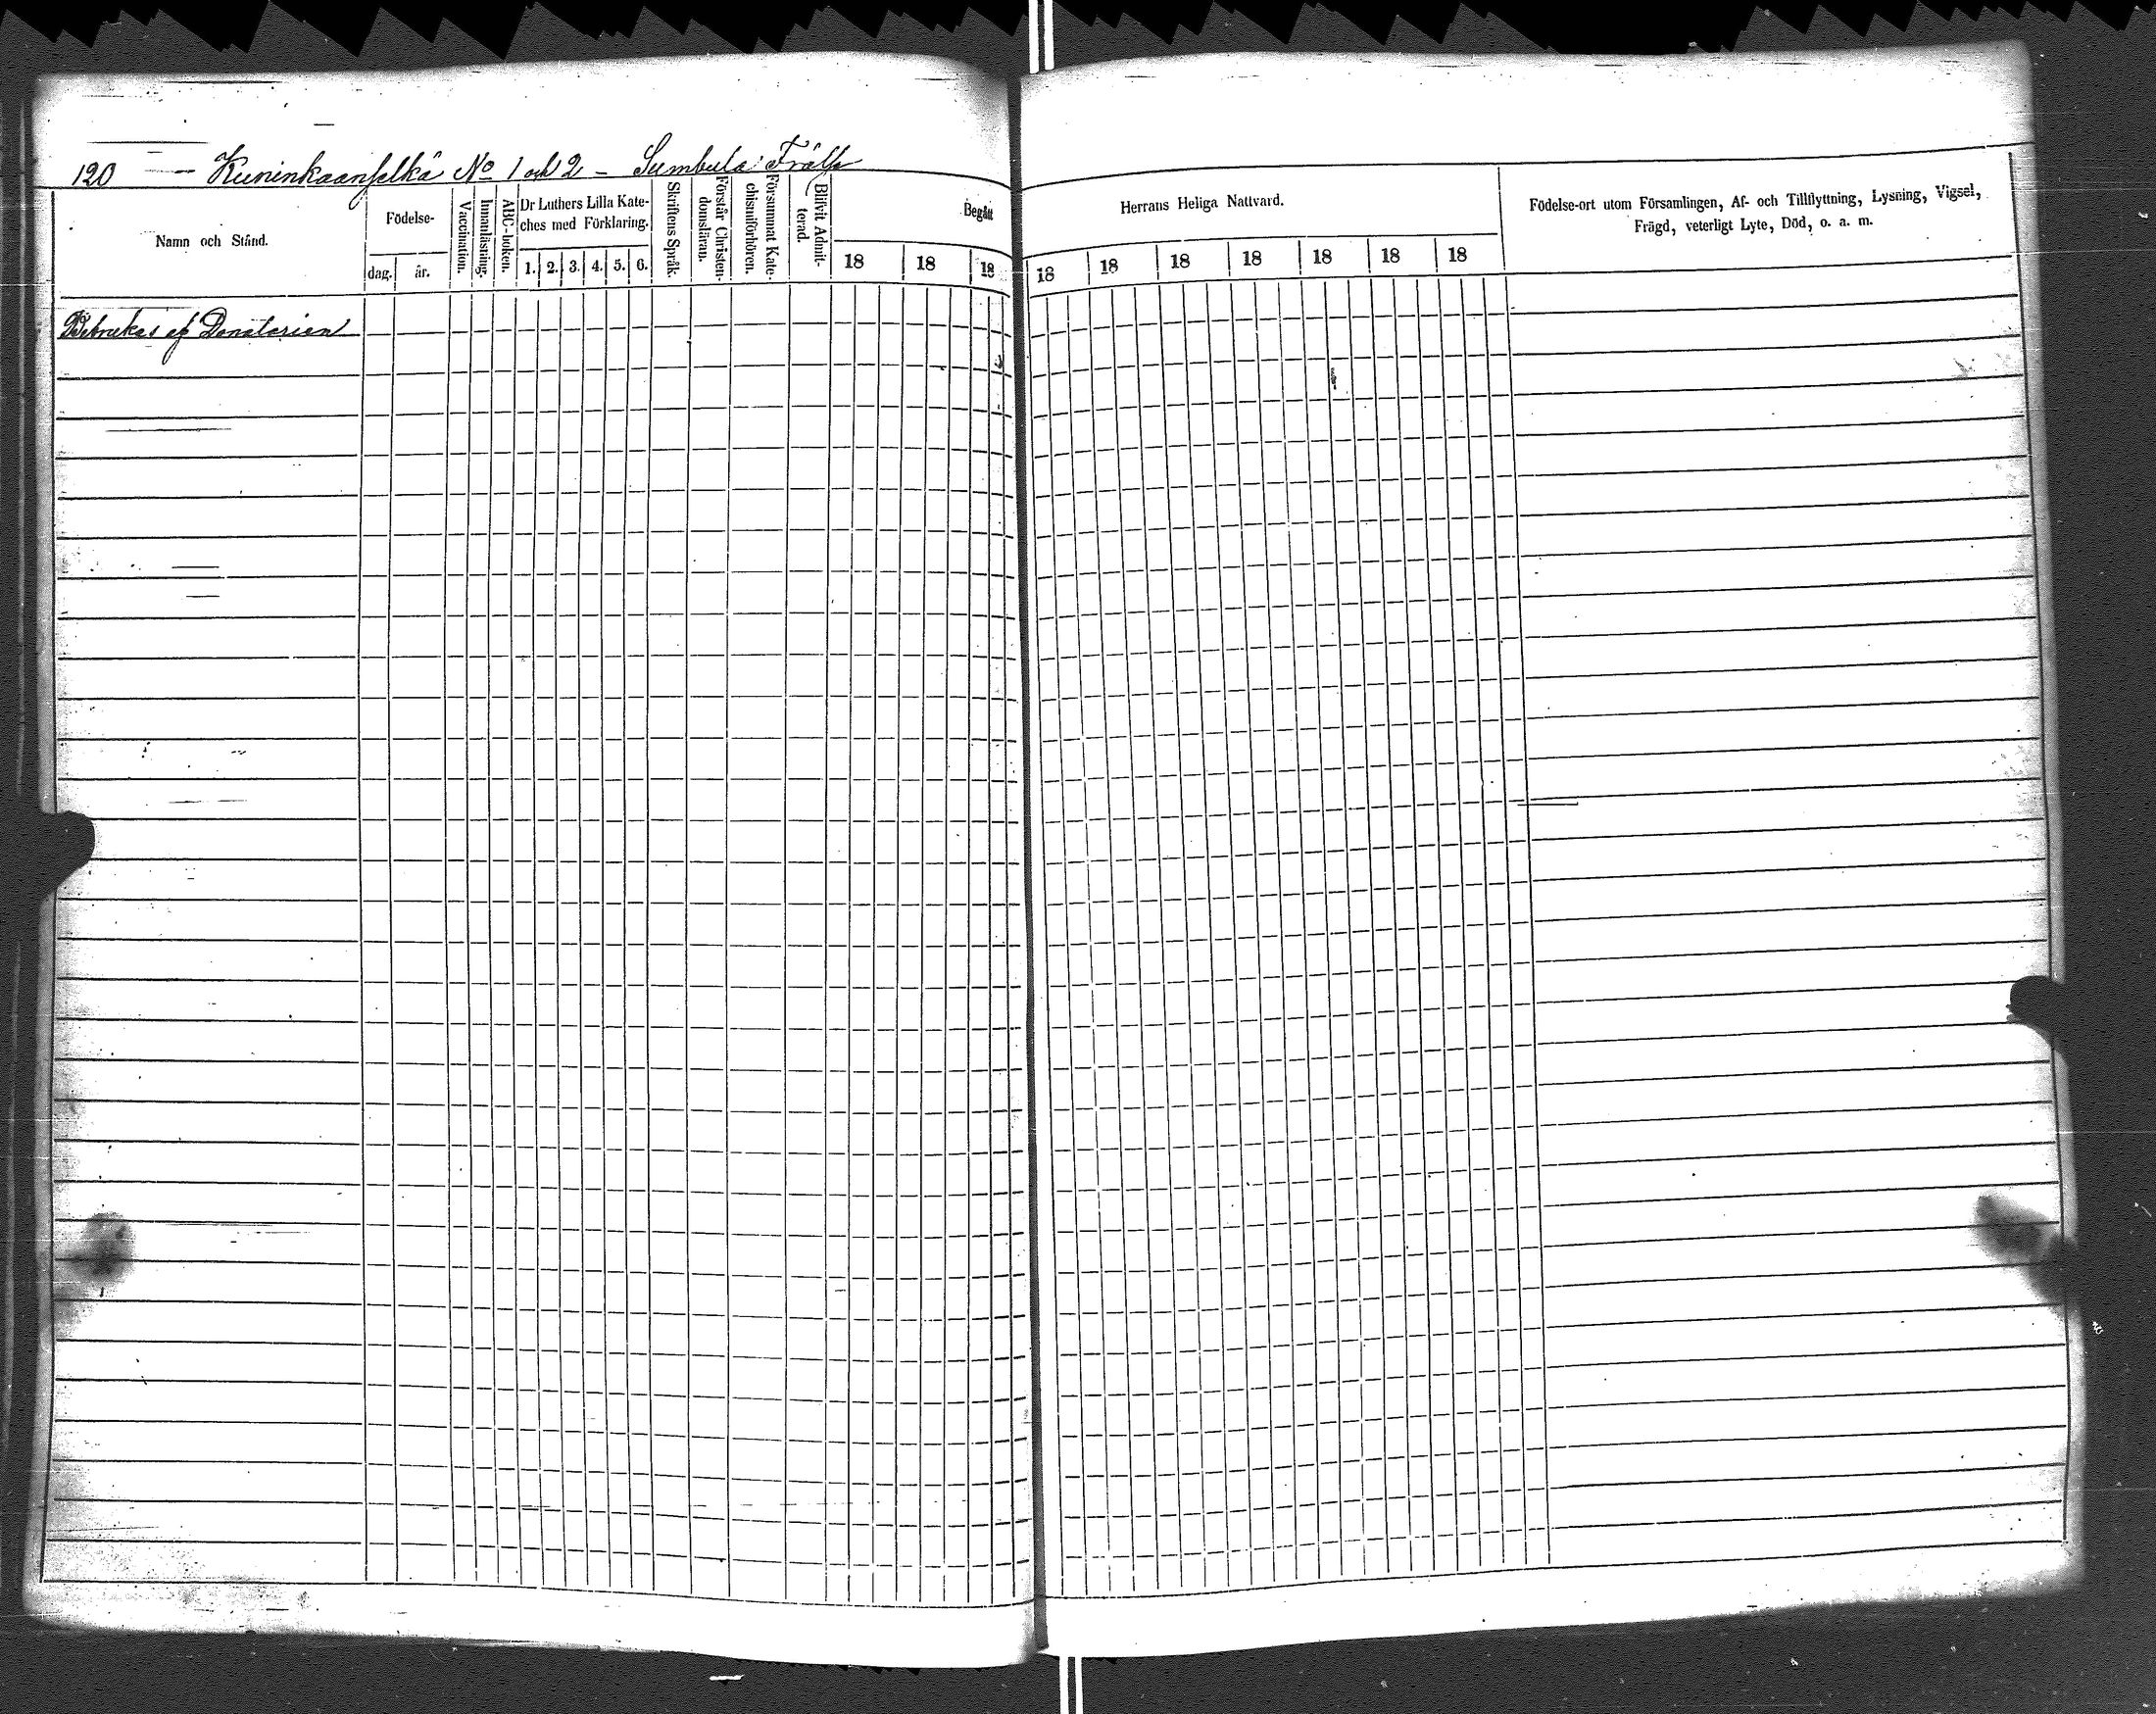 120 — Kuninkaanselkä No 1 och 2 — Sumbula Frälse
Namn och Stånd.
Födelse-
dag.
år.
Vaccination.
Innanläsning.
ABC-boken.
Dr Luthers Lilla Kate-
ches med Förklaring.
1. 2. 3. 4. 5. 6.
Skriftens Språk.
Förstår Christen-
domsläran.
Försummat Kate-
chismiförhören.
Blifvit Admit-
terad.
Begått
18 18 18
Herrans Heliga Nattvard.
18 18 18 18 18 18 18
Födelse-ort utom Församlingen, Af- och Tillflyttning, Lysning, Vigsel,
Frägd, veterligt Lyte, Död, o. a. m.
Bebrukas af Donatarien